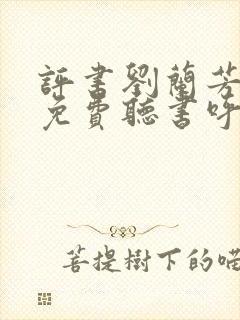 評書劉蘭芳
免費聽書呼
菩提樹下的喵